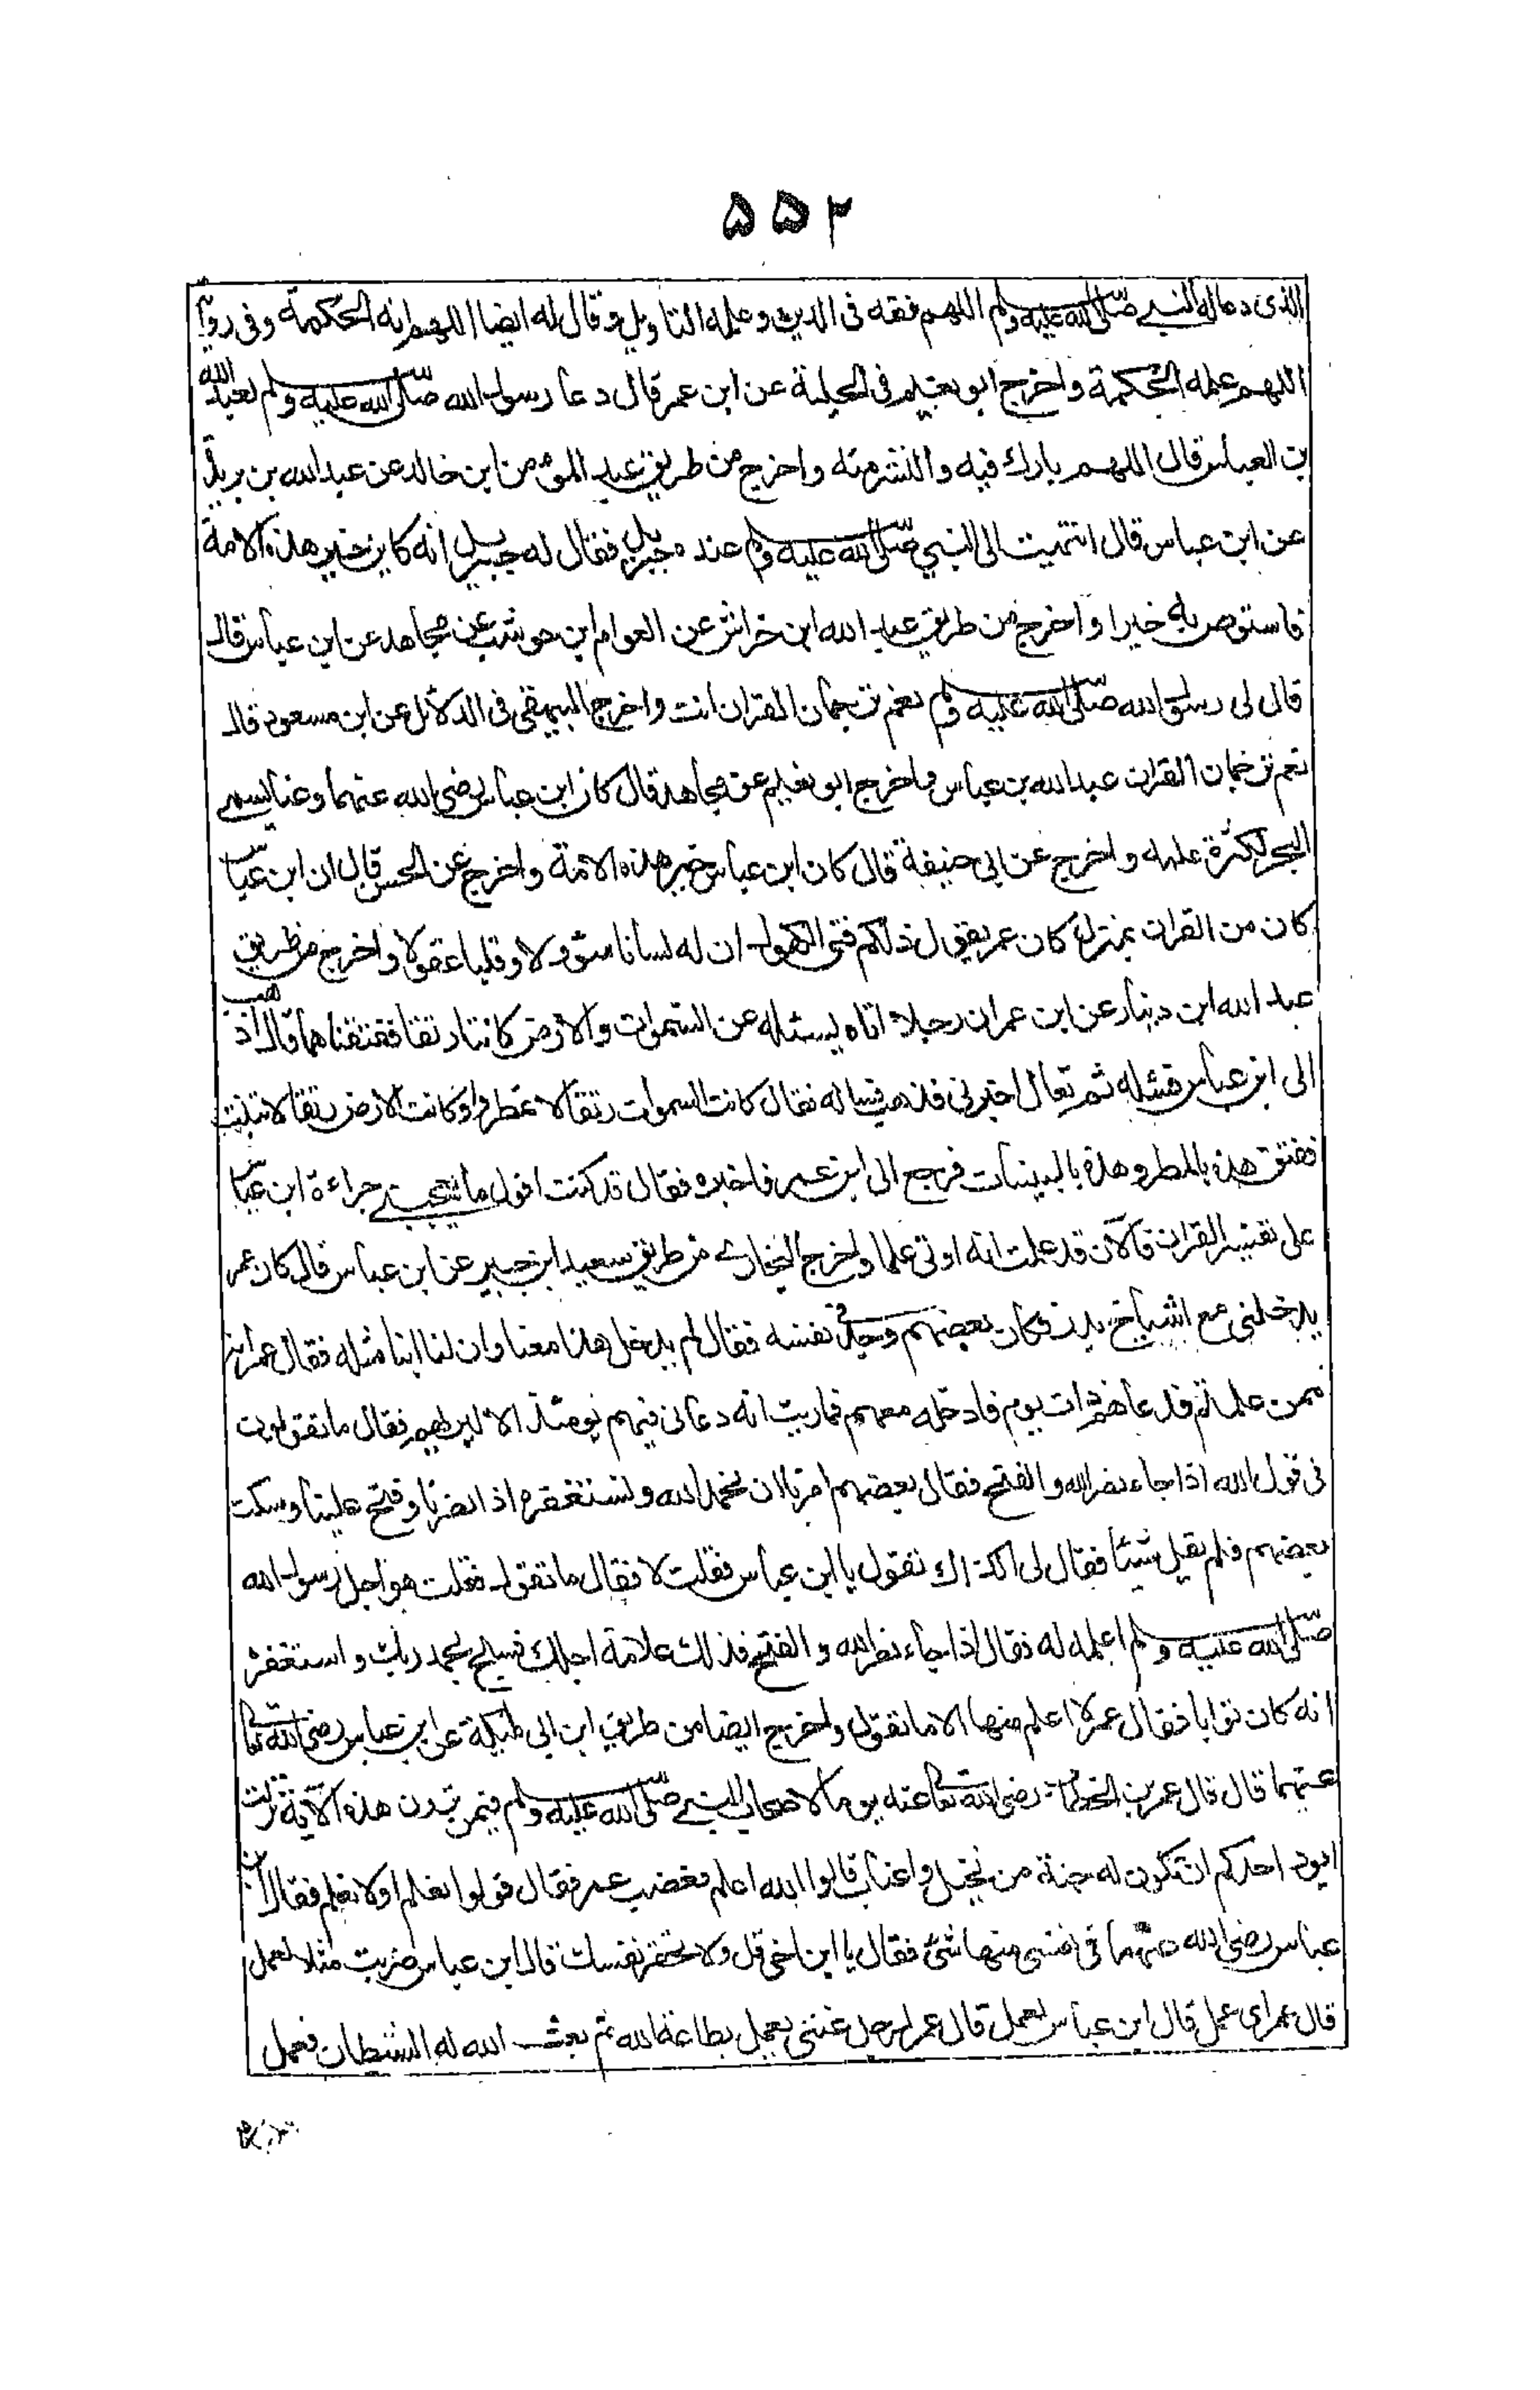 ۵۵۲
الذى دعا له النبي صلى الله عليه ولم اللهم فقه فى الدين وعلمه التاويل وقال له ايضا اللهم اته الحكمة وفى رواية
اللهم علمه الحكمة واخرج ابو نعيم فى الحلية عن ابن عمر قال دعا رسول الله صلى الله عليه ولم لعبد الله
بن العباس قال اللهم بارك فيه وانشر منه واخرج من طريق عبد المؤمن ابن خالد عن عبد الله بن بريدة
عن ابن عباس قال انتهيت الى النبي صلى الله عليه ولم عنده جبريل فقال له جبريل انه كاين خير هذه الامة
فاستوص به خيرا واخرج من طريق عبد الله ابن خراش عن العوام ابن حوشب عن مجاهد عن ابن عباس قال
قال لى رسول الله صلى الله عليه ولم نعم ترجمان القران انت واخرج البيهقى فى الدلائل عن ابن مسعود قال
نعم ترجمان القران عبد الله بن عباس واخرج ابو نعيم عن مجاهد قال كان ابن عباس رضى الله عنهما وعنا يسمى
البحر لكثرة علمه واخرج عن ابى حنيفة قال كان ابن عباس حبر هذه الامة واخرج عن الحسن قال ان ابن عباس
كان من القران بمنزل كان عمر يقول ذلكم فتى الكهول ان له لسانا سؤولا وقلبا عقولا واخرج من طريق
عبد الله ابن دينار عن ابن عمر ان رجلا اتاه يسئله عن السموات والارض كانتا رتقا ففتقناهما قال اذهب
الى ابن عباس فسئله ثم تعال اخبرنى فذهب فساله فقال كانت السموات رتقا لا تمطر وكانت الارض رتقا لا تنبت
ففتق هذه بالمطر وهذه بالنبات فرجع الى ابن عمر فاخبره فقال قد كنت اقول ما يعجبنى جراءة ابن عباس
على تفسير القران فالآن قد علمت انه اوتى علما واخرج البخارى من طريق سعيد ابن جبير عن ابن عباس قال كان عمر
يدخلنى مع اشياخ بدر فكان بعضهم وجد فى نفسه فقال لم يدخل هذا معنا وان لنا ابنا مثله فقال عمر انه
ممن علمتم فدعاهم ذات يوم فادخله معهم فما ريت انه دعانى فيهم يومئذ الا ليريهم فقال ما تقولون
فى قول الله اذا جاء نصر الله والفتح فقال بعضهم امرنا ان نحمد الله ونستغفره اذا نصرنا وفتح علينا وسكت
بعضهم فلم يقل شيئا فقال لى اكذاك تقول يا ابن عباس فقلت لا فقال ما تقول فقلت هو اجل رسول الله
صلى الله عليه ولم اعلمه له فقال اذا جاء نصر الله والفتح فذلك علامة اجلك فسبح بحمد ربك واستغفره
انه كان توابا فقال عمر لا اعلم منها الا ما تقول واخرج ايضا من طريق ابن ابى مليكة عن ابن عباس رضى الله تعا
عنهما قال قال عمر بن الخطاب رضى الله تعا عنه يوما لاصحاب النبي صلى الله عليه ولم فيمن ترون هذه الآية نزلت
ايود احدكم ان تكون له جنة من نخيل واعناب قالوا الله اعلم فغضب عمر فقال قولوا نعلم او لا نعلم فقال ابن
عباس رضى الله عنهما فى نفسى منها شئ فقال يا ابن اخى قل ولا تحقر نفسك قال ابن عباس ضربت مثلا لعمل
قال عمر اى عمل قال ابن عباس لعمل قال عمر لرجل غنى يعمل بطاعة الله ثم بعث الله له الشيطان فعمل